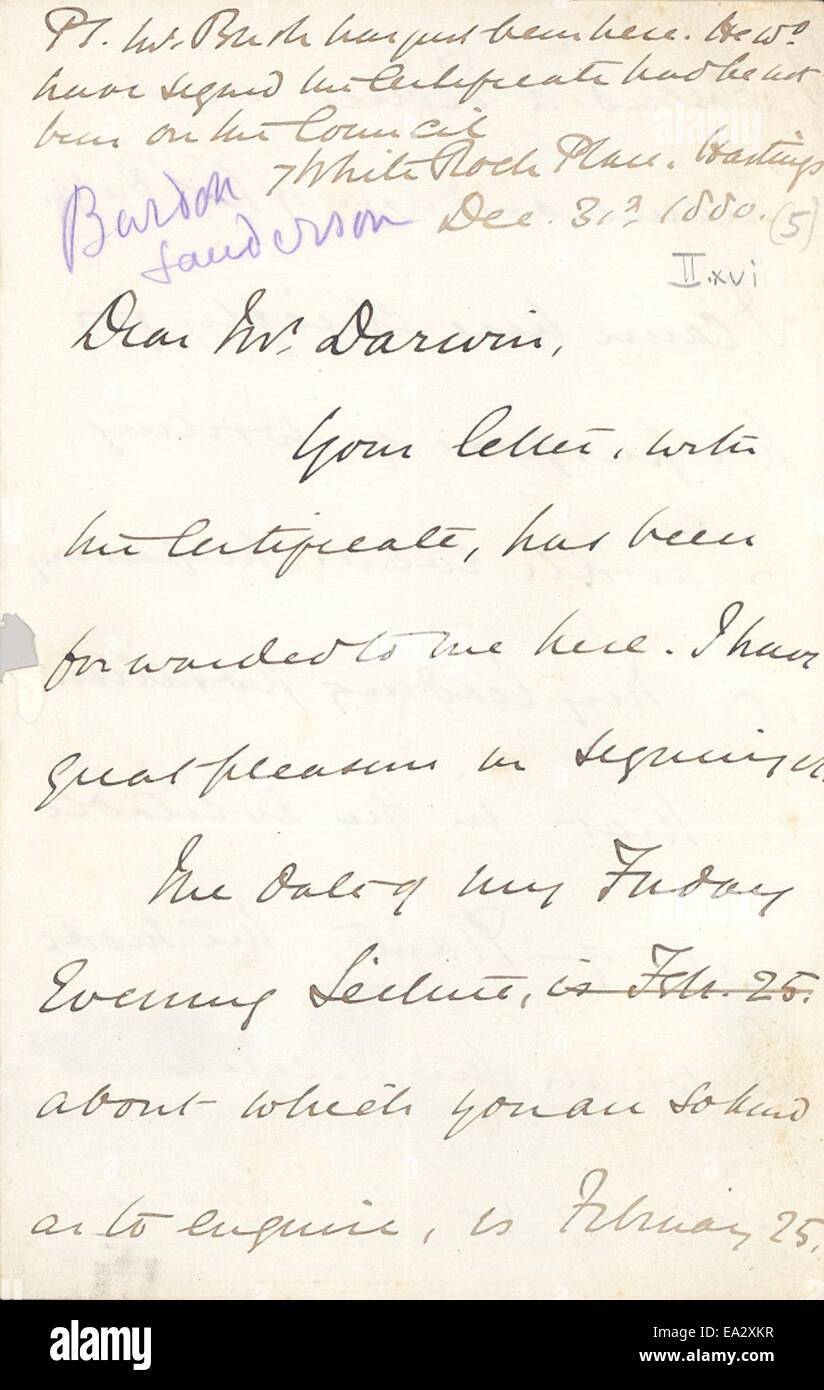 PS. Mr. Busk has just been here. He wd
have signed the Certificate had he not
been on the Council
7 White Rock Place. Hastings
Dec. 31st, 1880. (5)
Burdon
Sanderson
II.xvi
Dear Mr. Darwin,
Your letter, with
the Certificate, has been
forwarded to me here. I have
great pleasure in signing it.
The date of my Friday
Evening Lecture, is Feb. 25.
about which you are so kind
as to enquire, is February 25.
alamy
Image ID: EA2XKR
www.alamy.com